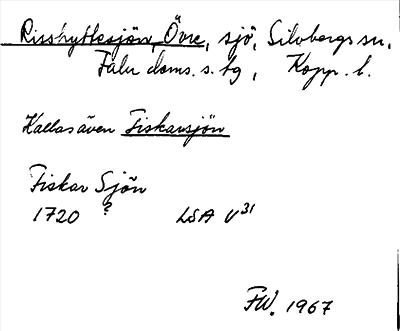 Risshyttesjön, Övre, sjö, Silvbergs sn,
Falu doms. s. tg, Kopp. l.
Kallas även Fiskarsjön
Fiskar Sjön
1720 ? LSA V31
FW. 1967